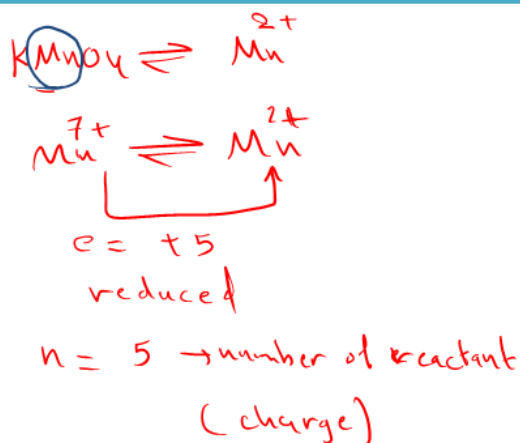 KMnO4 ⇌ Mn²⁺
Mn⁷⁺ ⇌ Mn²⁺
e = +5
reduced
n = 5 → number of reactant
(charge)